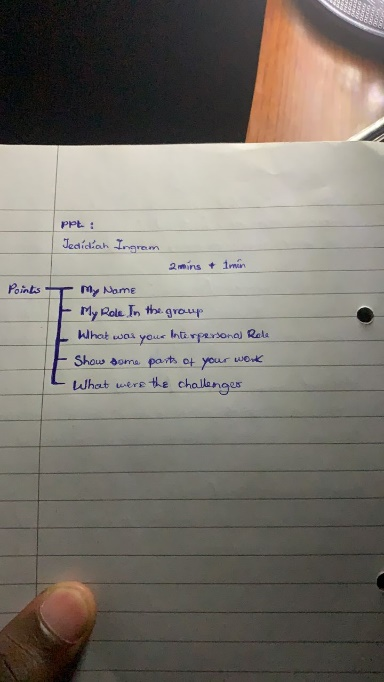 PPt :
Jedidiah Ingram
2mins + 1min
Points
My Name
My Role In the group
What was your Interpersonal Role
Show some parts of your work
What were the challenges